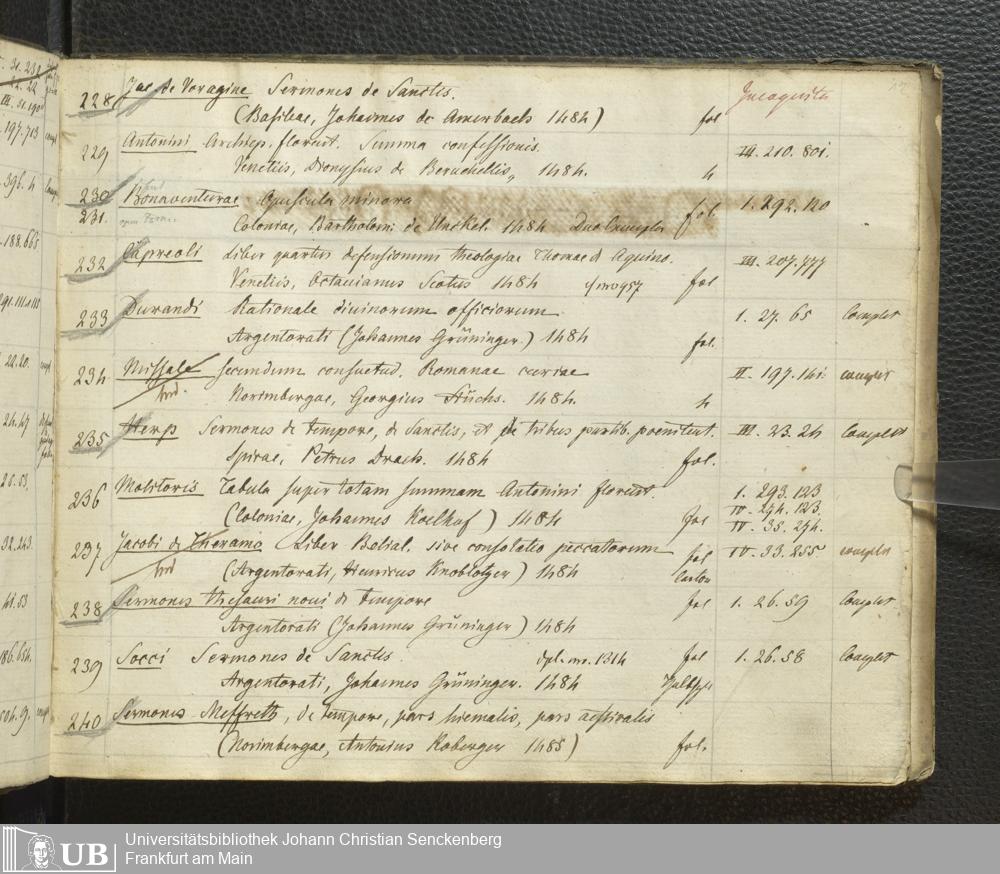 228 Jac de Voragine Sermones de Sanctis.
(Basileae, Johannes de Amerbach 1484) fol
229 Antonini Archiep. florent. Summa confessionis. III. 210. 801.
Venetiis, Dionysius de Beruchellis,, 1484. 4
230 Bonaventurae Opuscula minora 1. 292. 120
231. Coloniae, Bartholom: de Unckel. 1484 Duo Exempla fol.
232 Capreoli Liber quartus defensionum theologiae Thomae d Aquino. III. 207. 777
Venetiis, Octavianus Scotus 1484 cf nro 957 fol
233 Durandi Rationale divinorum officiorum 1. 27. 65 Complet
Argentorati (Johannes Grüninger.) 1484 fol.
234 Missale secundum consuetud. Romanae curiae II. 197. 141. complet
Norimbergae, Georgius Stüchs. 1484. 4
235 Herp Sermones de tempore, de Sanctis, et de tribus partib. poenitent. III. 23. 24 Complet
Spirae, Petrus Drach. 1484 fol.
236 Molitoris Tabula super totam summam Antonini florent. 1. 293. 123
IV. 274. 123.
(Coloniae, Johannes Koelhof) 1484 fol IV. 35. 274.
237 Jacobi de Theramo Liber Belial. sive consolatio peccatorum fol IV. 33. 255 complet
(Argentorati, Henricus Knoblotzer) 1484
238 Sermones thesauri novi de tempore fol 1. 26. 59 Complet
Argentorati (Johannes Grüninger) 1484
239 Socci Sermones de Sanctis. dpl. nro. 1314 fol 1. 26. 58 Complet
Argentorati, Johannes Grüninger. 1484
240 Sermones Meffreth, de tempore, pars hiemalis, pars aestivalis
(Norimbergae, Antonius Koberger 1485) fol.
Universitätsbibliothek Johann Christian Senckenberg
UB Frankfurt am Main